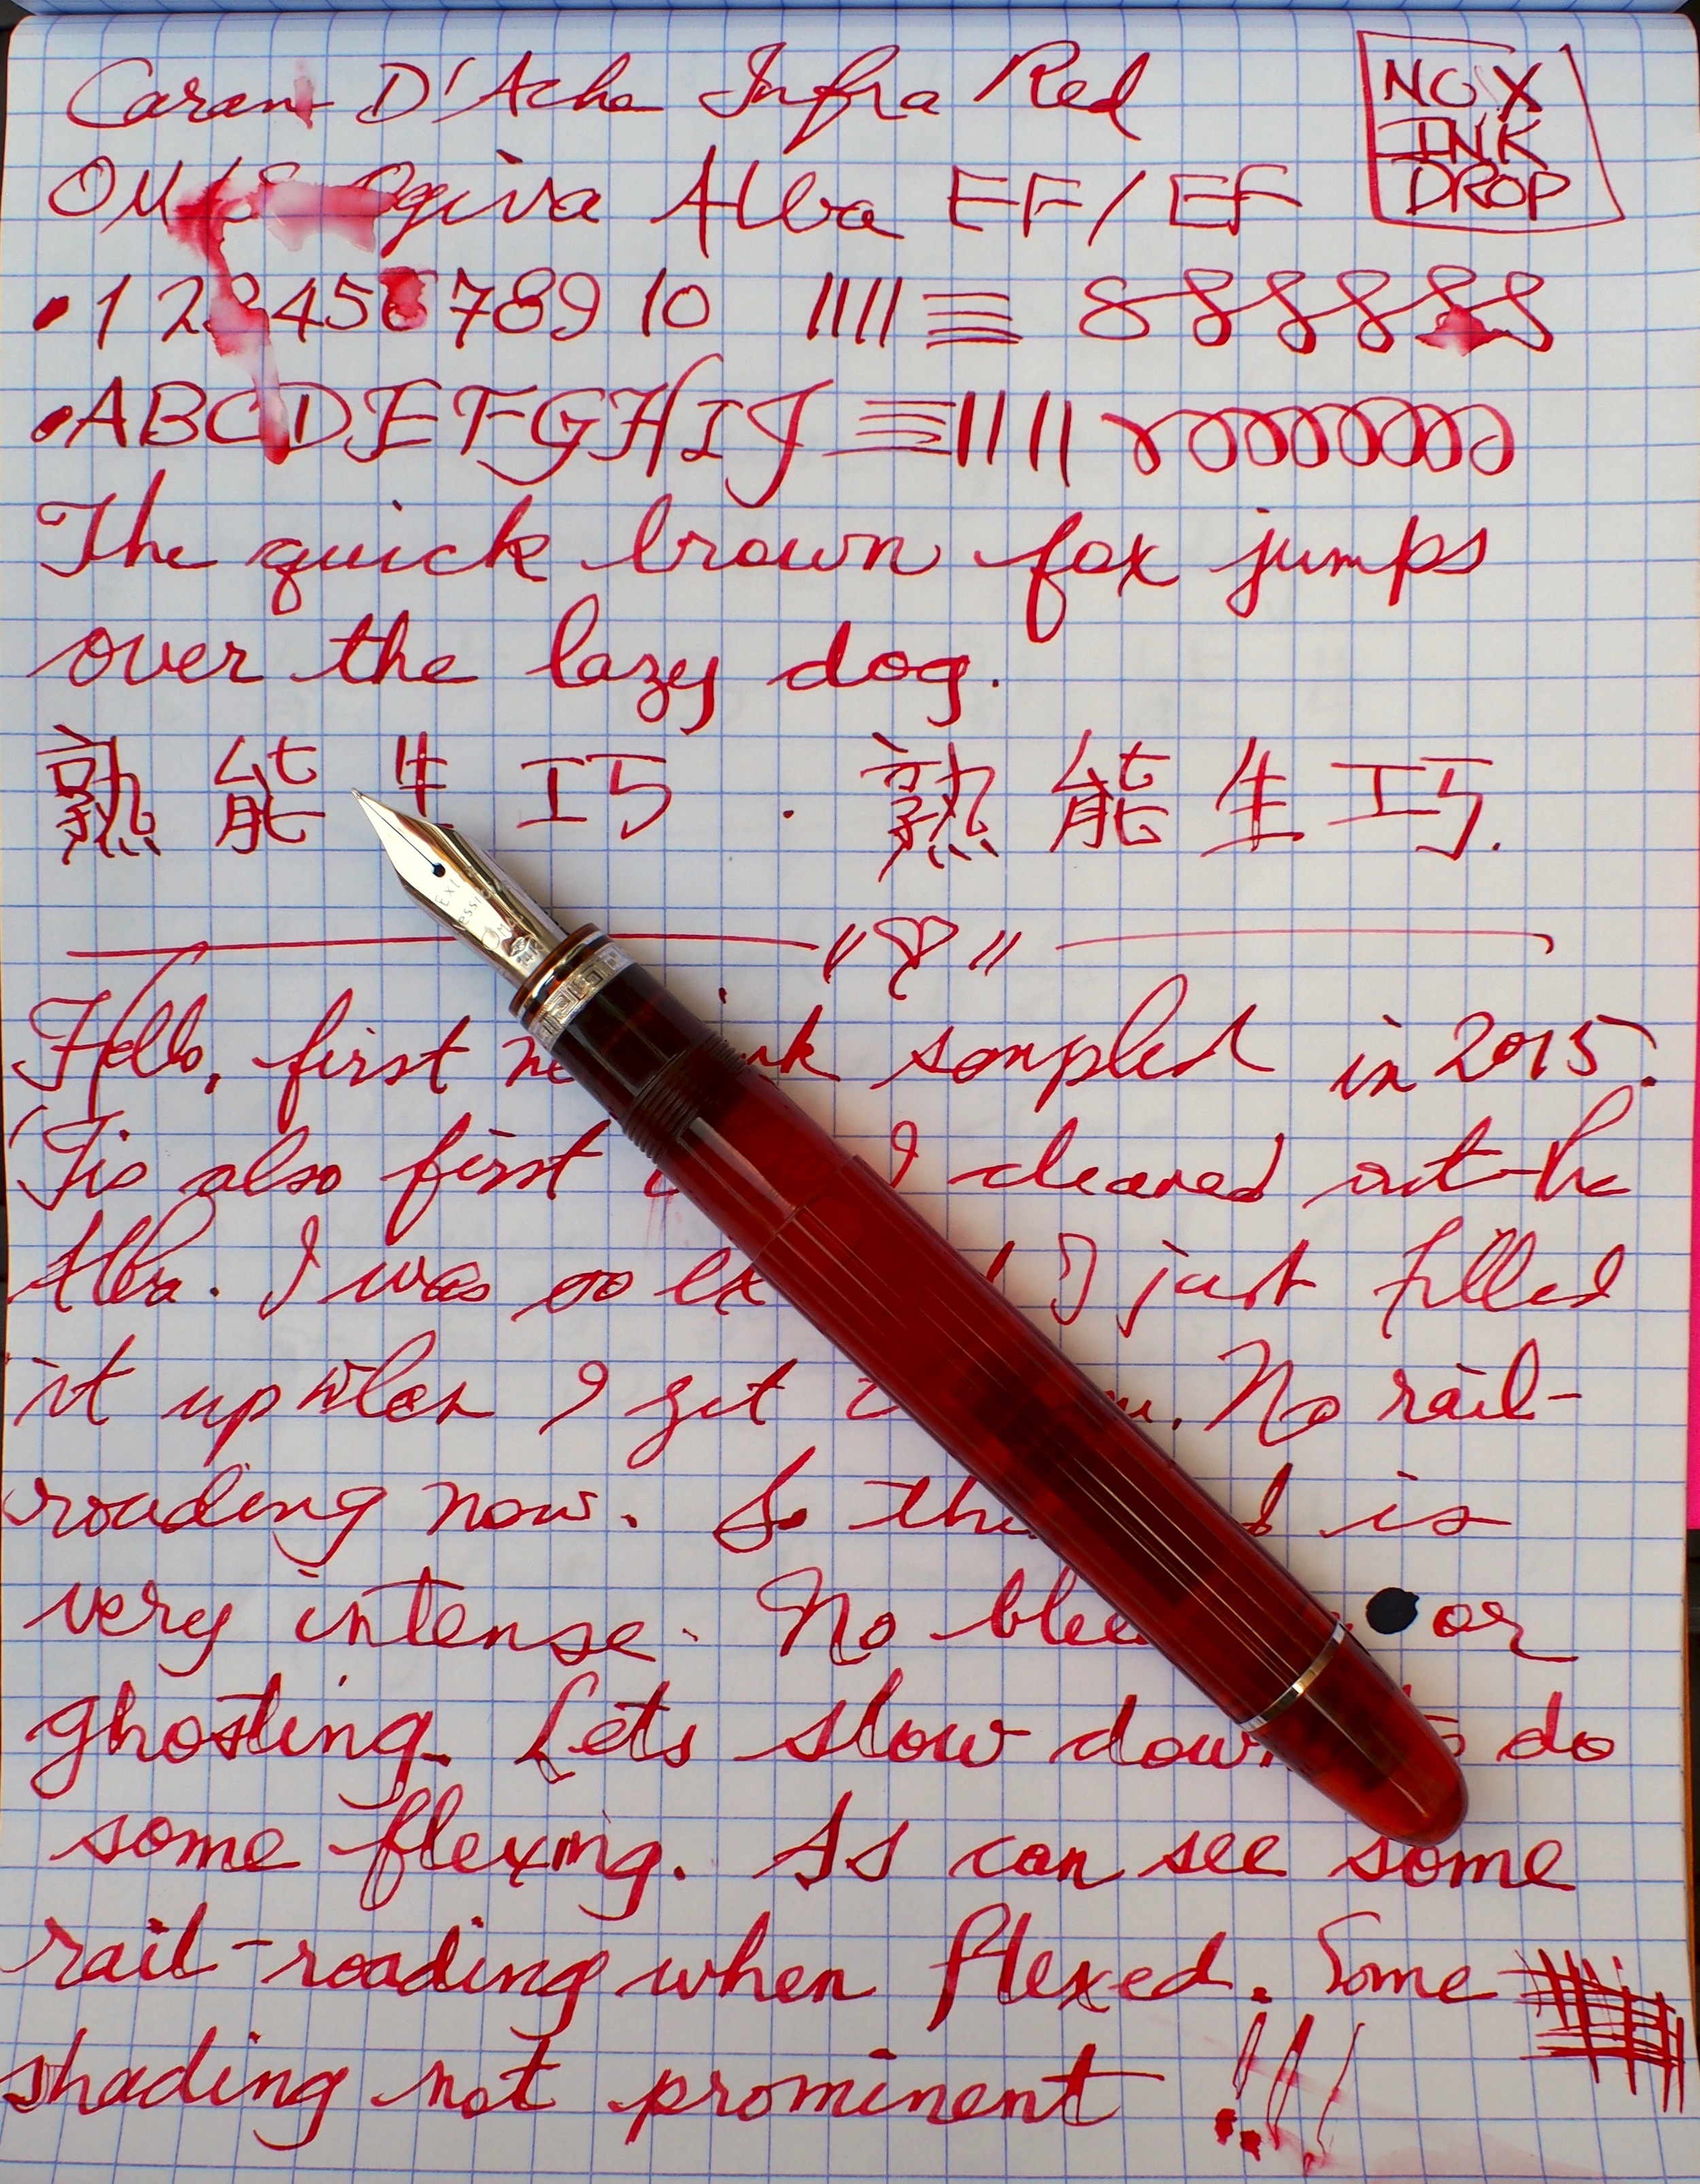 Caran D'Ache Infra Red
NOX
INK
DROP
Ogiva Alba EF/EF
1 2 3 4 5 6 7 8 9 10
A B C D E F G H I J
The quick brown fox jumps
over the lazy dog.
熟 能 生 巧 . 熟 能 生 巧.
Hello, first sampled in 2015.
'Tis also first I cleaned out the
Alba. I was so I just filled
it up when I got No rail-
roading now. So is
very intense. No or
ghosting. Lets slow down do
some flexing. As can see some
rail-roading when flexed. Some
shading not prominent !!!